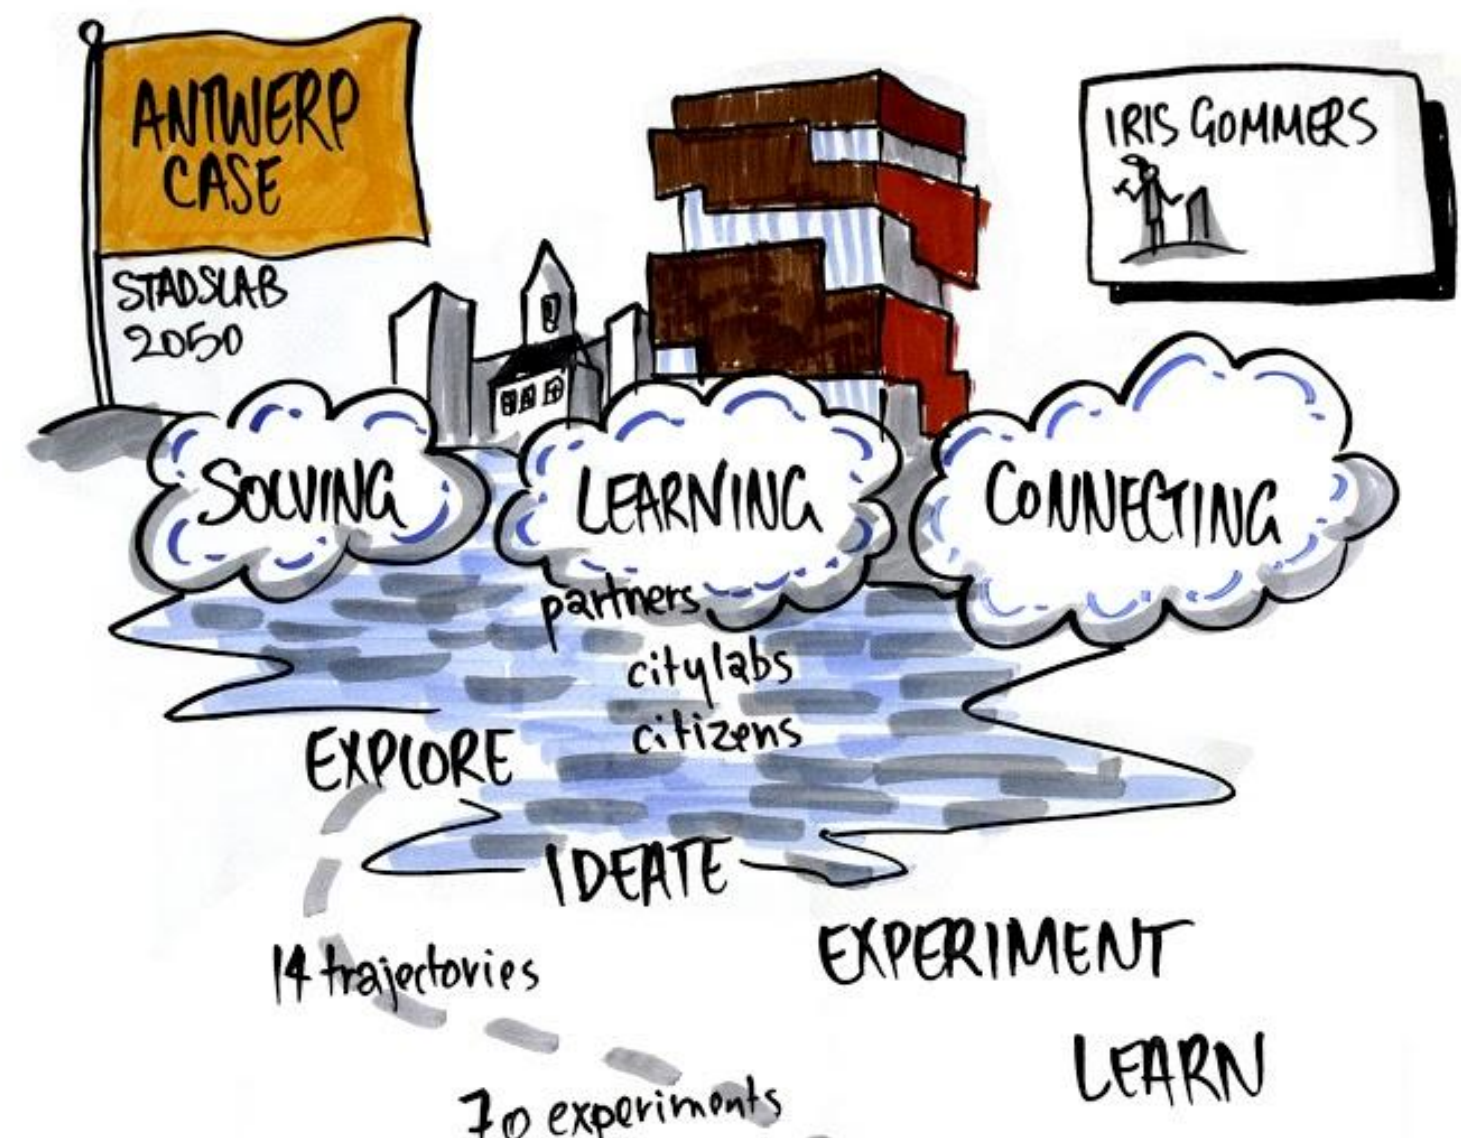 ANTWERP
CASE
STADSLAB
2050
IRIS GOMMERS
SOLVING
LEARNING
CONNECTING
partners
citylabs
citizens
EXPLORE
IDEATE
EXPERIMENT
14 trajectories
LEARN
70 experiments